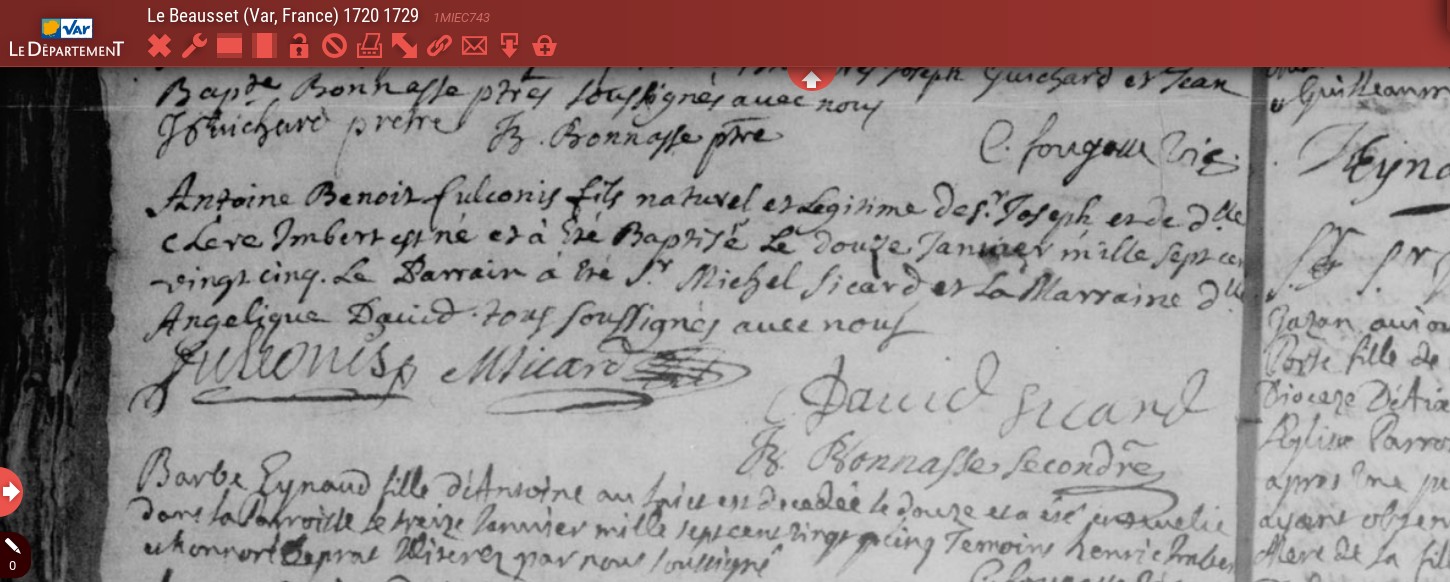 Le Beausset (Var, France) 1720 1729 1MIEC743
VAR
LE DÉPARTEMENT
Joseph Guichard et Jean
Bapte Bonnasse ptres soussignés avec nous
JGuichard pretre B. Bonnasse ptre C. fougasse Vic.
Antoine Benoit fulconis fils naturel et Legitime de sr. Joseph et de dlle
Clere Imbert est né et à été Baptisé Le douze Janvier mille sept cen
vingt cinq. Le Parrain à été Sr Michel Sicard et La Marraine dlle
Angelique David tous soussignés avec nous
fulconis MSicard
David Sicard
B. Bonnasse secondre
Barbe Eynaud fille d'Antoine au est decedée le douze et a été
dans la Parroisse le treize Janvier mille sept cent vingt cinq Temoins henric
et honnoré par nous soussigné
Guilleaum
Eyna
Sr
Gazan
Porte fille de
Dioceze
Eglise Parro
apres
ayant obser
Mere de la fil
0